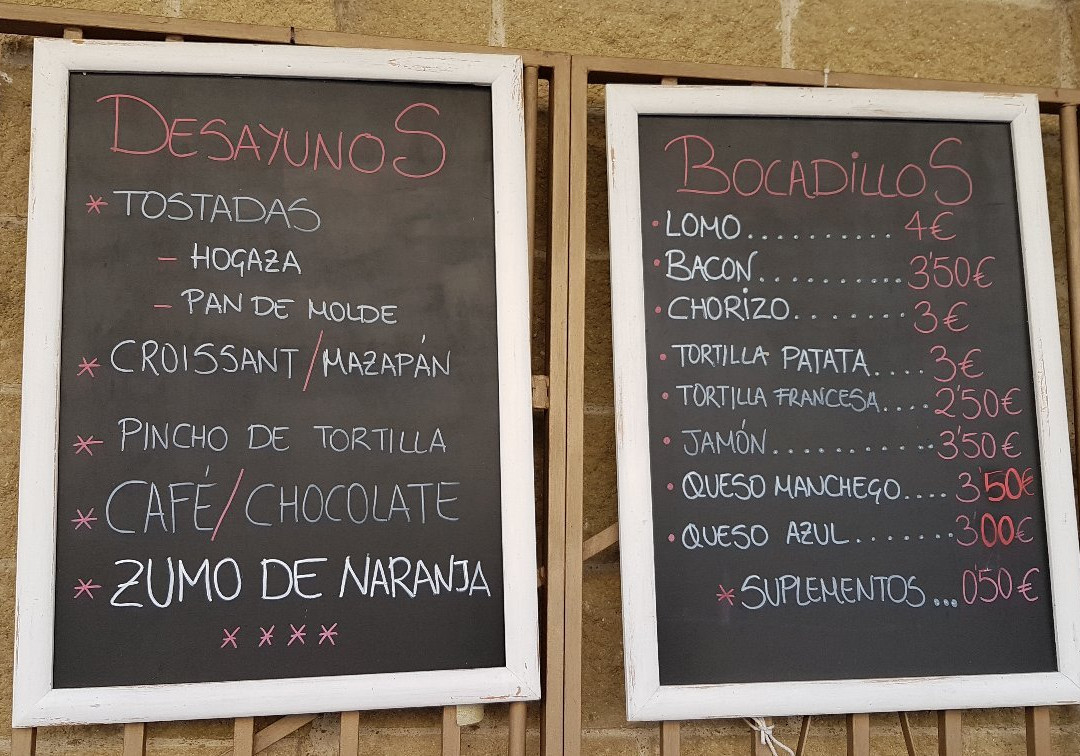 DESAYUNOS
* TOSTADAS
- HOGAZA
- PAN DE MOLDE
* CROISSANT/MAZAPÁN
* PINCHO DE TORTILLA
* CAFÉ/CHOCOLATE
* ZUMO DE NARANJA
* * * *
BOCADILLOS
• LOMO.......... 4€
• BACON.......... 3'50€
• CHORIZO....... 3€
• TORTILLA PATATA.... 3€
• TORTILLA FRANCESA.... 2'50€
• JAMÓN........... 3'50€
• QUESO MANCHEGO.... 3'50€
• QUESO AZUL....... 3'00€
* SUPLEMENTOS... 0'50€